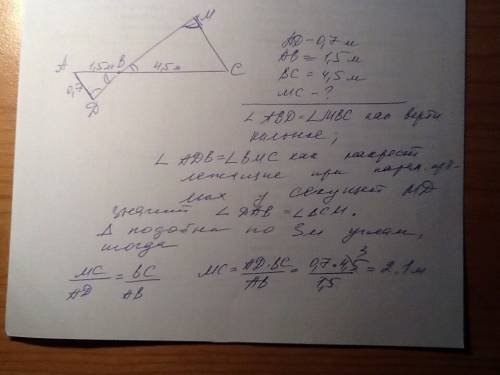 M
A 1,5м B 4,5м C
0,7
D
AD = 0,7 м
AB = 1,5 м
BC = 4,5 м
MC - ?
∠ABD = ∠MBC как верти
кальные;
∠ADB = ∠BMC как накрест
лежащие при парал. пря-
мых у секущей MD
значит ∠DAB = ∠BCM.
Δ подобна по 3м углам,
тогда
MC/AD = BC/AB MC = AD·BC/AB = 0,7·4,5/1,5 = 2.1 м
3